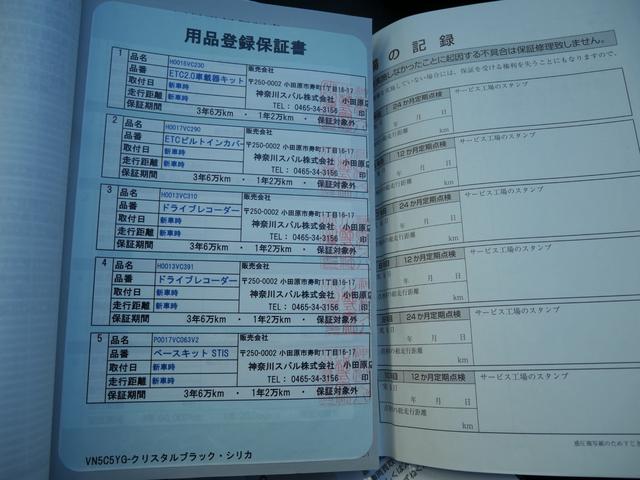 用品登録保証書
1
品名 H0016VC230
品番 ETC2.0車載器キット
取付日 新車時
走行距離 新車時
保証期間 3年6万km ・ 1年2万km ・ 保証対象外
販売会社
〒250-0002 小田原市寿町1丁目16-17
神奈川スバル株式会社 小田原店
TEL: 0465-34-3156 印
2
品名 H0017VC290
品番 ETCビルトインカバー
取付日 新車時
走行距離 新車時
保証期間 3年6万km ・ 1年2万km ・ 保証対象外
販売会社
〒250-0002 小田原市寿町1丁目16-17
神奈川スバル株式会社 小田原店
TEL: 0465-34-3156 印
3
品名 H0013VC310
品番 ドライブレコーダー
取付日 新車時
走行距離 新車時
保証期間 3年6万km ・ 1年2万km ・ 保証対象外
販売会社
〒250-0002 小田原市寿町1丁目16-17
神奈川スバル株式会社 小田原店
TEL: 0465-34-3156 印
4
品名 H0013VC391
品番 ドライブレコーダー
取付日 新車時
走行距離 新車時
保証期間 3年6万km ・ 1年2万km ・ 保証対象外
販売会社
〒250-0002 小田原市寿町1丁目16-17
神奈川スバル株式会社 小田原店
TEL: 0465-34-3156 印
5
品名 P0017VC063V2
品番 ベースキット STIS
取付日 新車時
走行距離 新車時
保証期間 3年6万km ・ 1年2万km ・ 保証対象外
販売会社
〒250-0002 小田原市寿町1丁目16-17
神奈川スバル株式会社 小田原店
TEL: 0465-34-3156 印
VN5C5YG-クリスタルブラック・シリカ
の記録
しなかったことに起因する不具合は保証修理致しません。
実施していない場合には、保証を受ける権利を失うことにもなりますので、
24か月定期点検 サービス工場のスタンプ
年 月 日
走行距離 km
12か月定期点検 サービス工場のスタンプ
年 月 日
総走行距離 km
24か月定期点検 サービス工場のスタンプ
年 月 日
の総走行距離 km
12か月定期点検 サービス工場のスタンプ
年 月 日
の総走行距離 km
24か月定期点検 サービス工場のスタンプ
年 月 日
の総走行距離 km
12か月定期点検 サービス工場のスタンプ
年 月 日
の総走行距離 km
感圧複写紙のため下じき